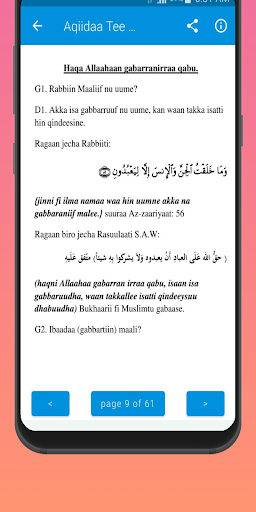 Aqiidaa Tee ...
Haqa Allaahaan gabarranirraa qabu.
G1. Rabbiin Maaliif nu uume?
D1. Akka isa gabbarruuf nu uume, kan waan takka isatti
hin qindeesine.
Ragaan jecha Rabbiiti:
وَمَا خَلَقْتُ ٱلْجِنَّ وَٱلْإِنسَ إِلَّا لِيَعْبُدُونِ ٥٦
{jinni fi ilma namaa waa hin uumne akka na
gabbaraniif malee.} suuraa Az-zaariyaat: 56
Ragaan biro jecha Rasuulaati S.A.W:
( حقُّ الله عَلَى العبادِ أَنْ يعبدوه وَلَا يشركوا به شيئاً) متّفق عَلَيْهِ
(haqni Allaahaa gabarran irraa qabu, isaan isa
gabbaruudha, waan takkallee isatti qindeesyuu
dhabuudha) Bukhaarii fi Muslimtu gabaase.
G2. Ibaadaa (gabbartiin) maali?
< page 9 of 61 >